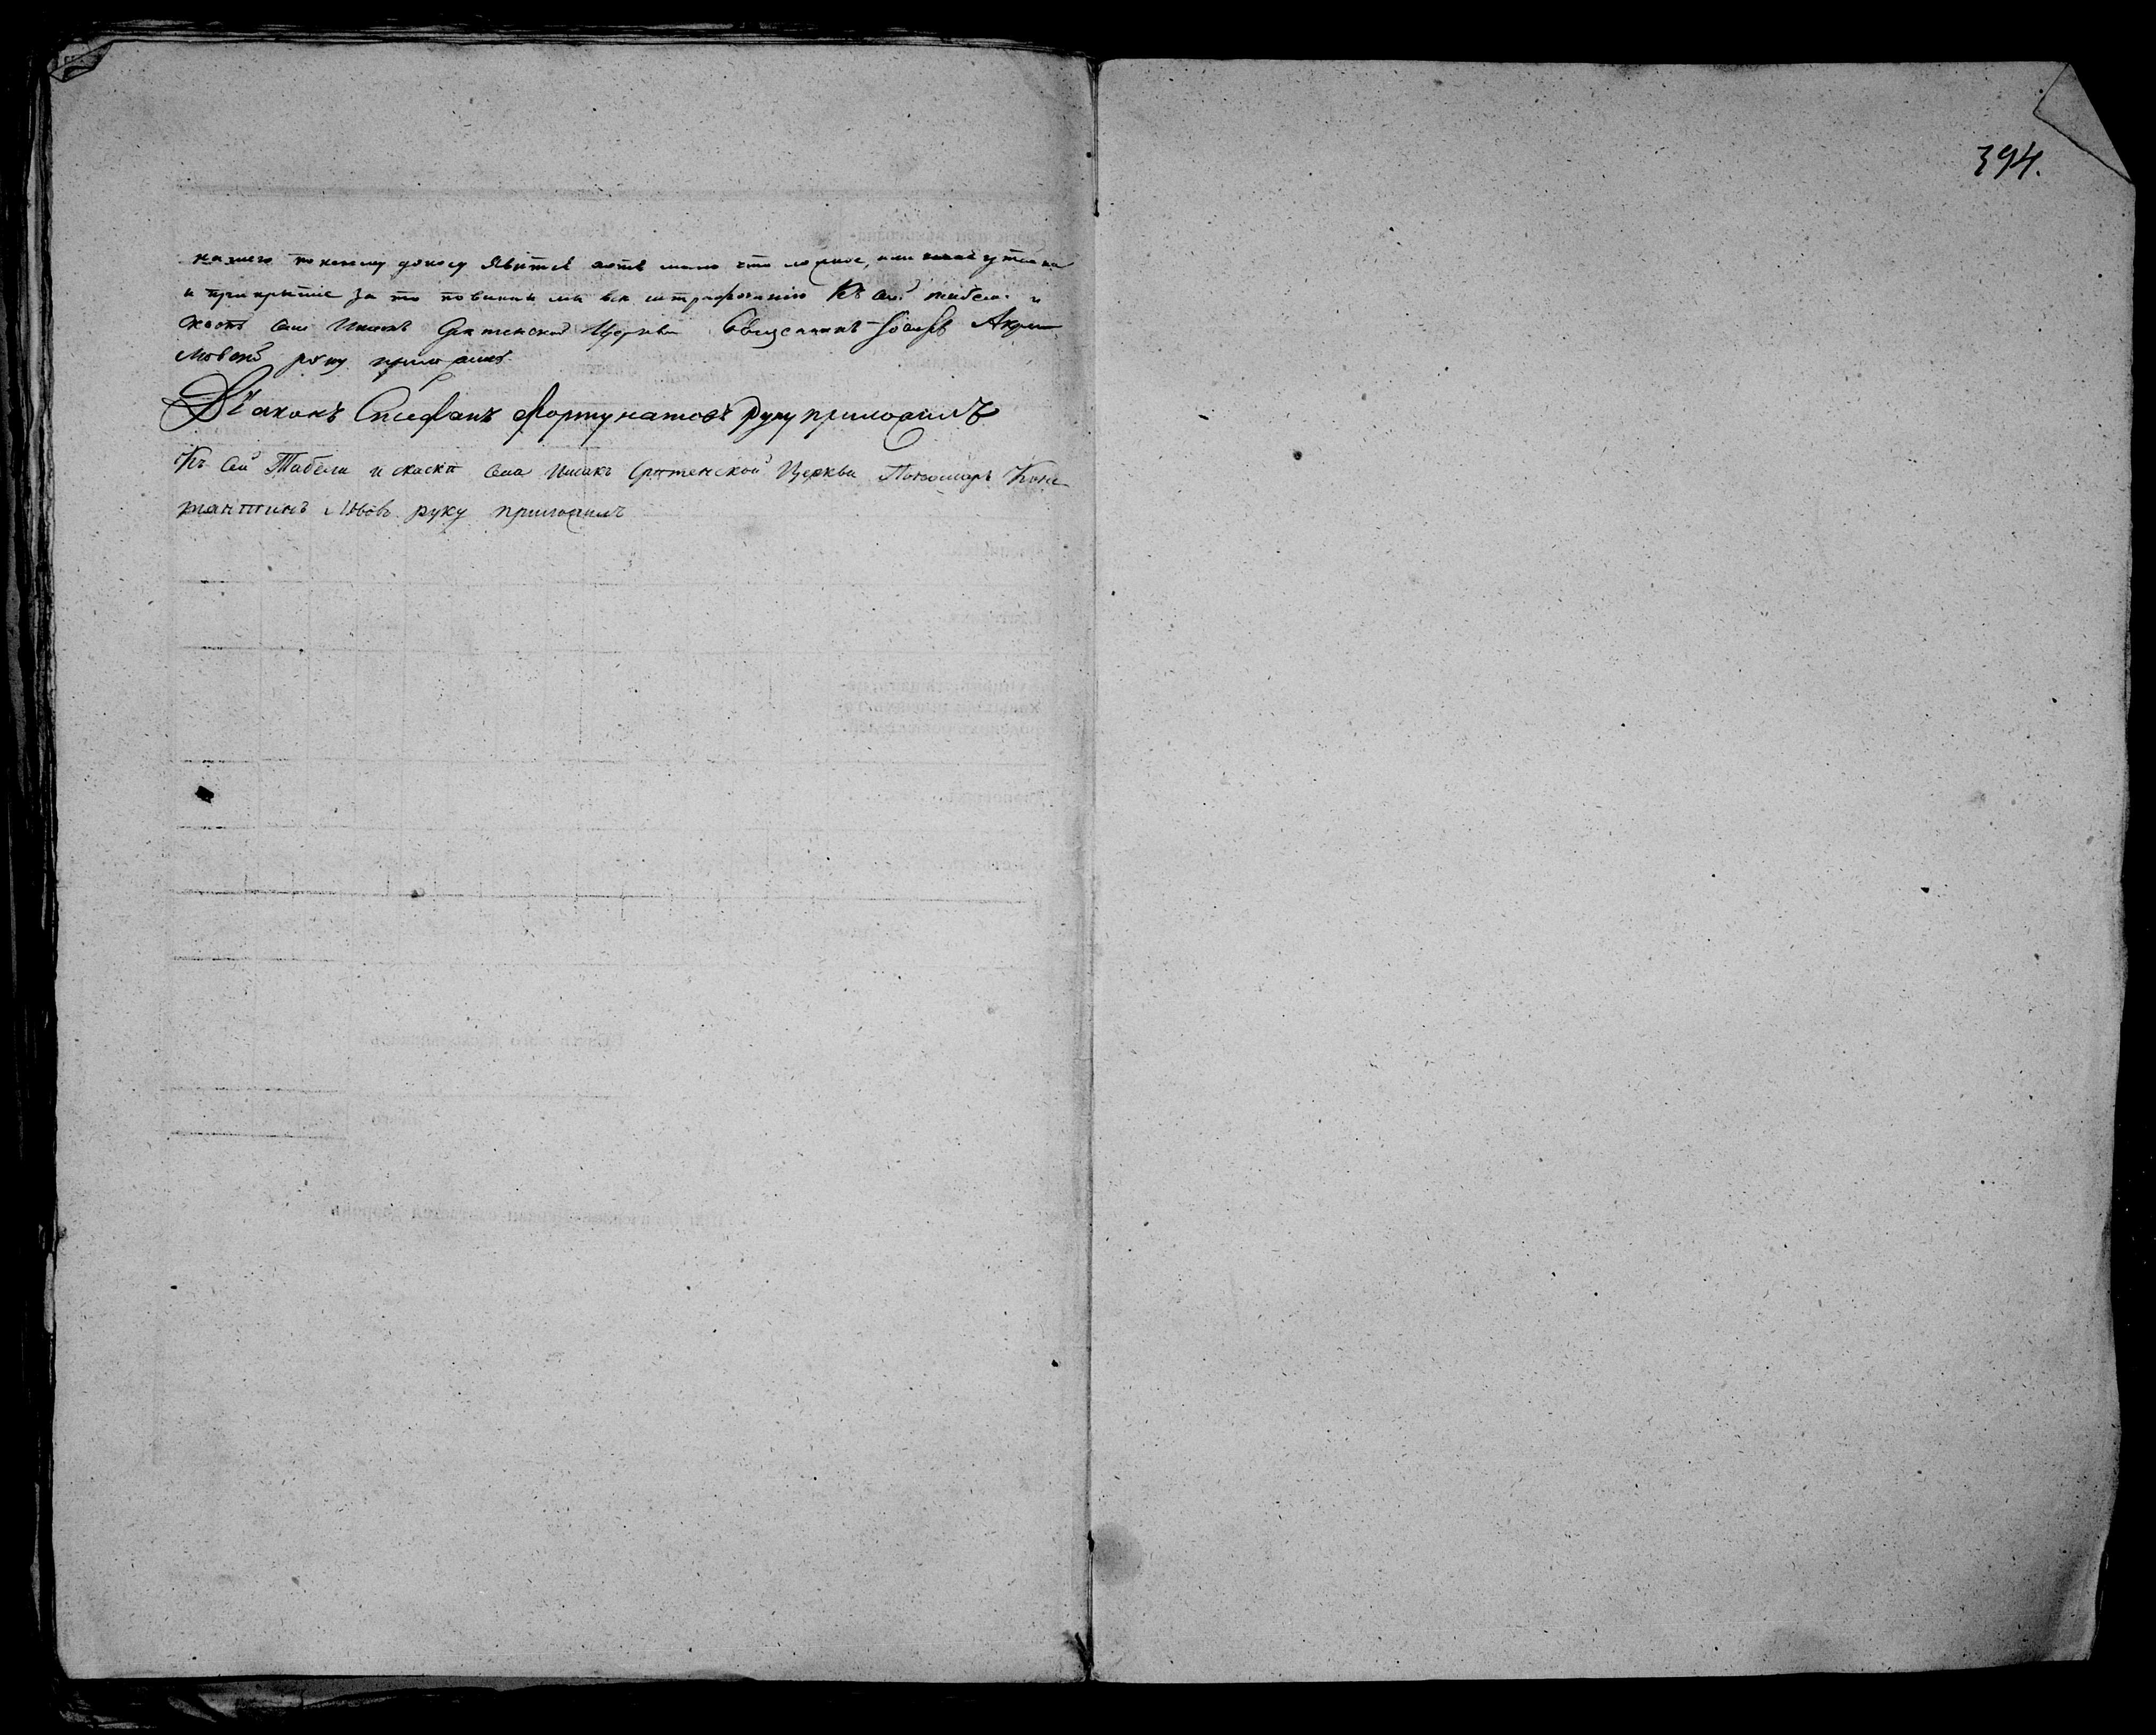 394.
нашего по коему доносу явится хотя мало что ложное, или какая утайка
и прикрытие за то повинны мы все штрафованию Къ сей табели и
скаскѣ села Ишакъ Срѣтенской Церкви Священникъ Іосифъ Акра
мовской руку приложилъ
Діаконъ Стефанъ Фортунатовъ руку приложилъ
Къ сей Табели и скаскѣ села Ишакъ Срѣтенской Церкви Пономарь Конс
тантинъ Львовъ руку приложилъ